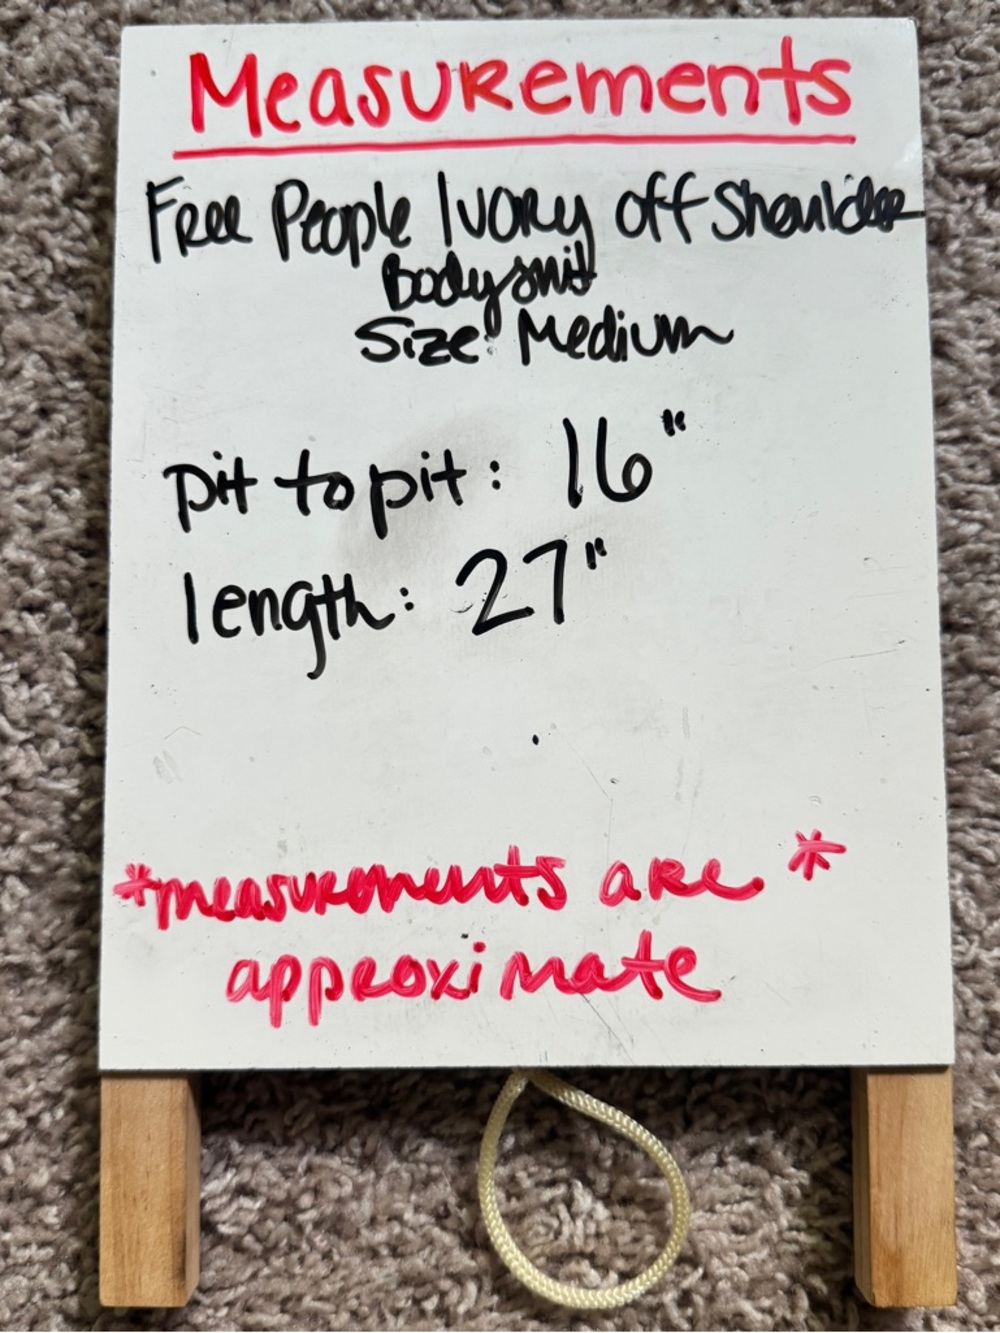 Measurements
Free People Ivory off Shoulder
Bodysuit
Size: Medium
pit to pit: 16"
length: 27"
*measurements are *
approximate